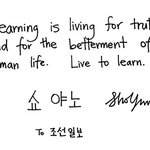 earning is living for trut
d for the betterment of
man life. Live to learn.
쇼 야노
To 조선일보